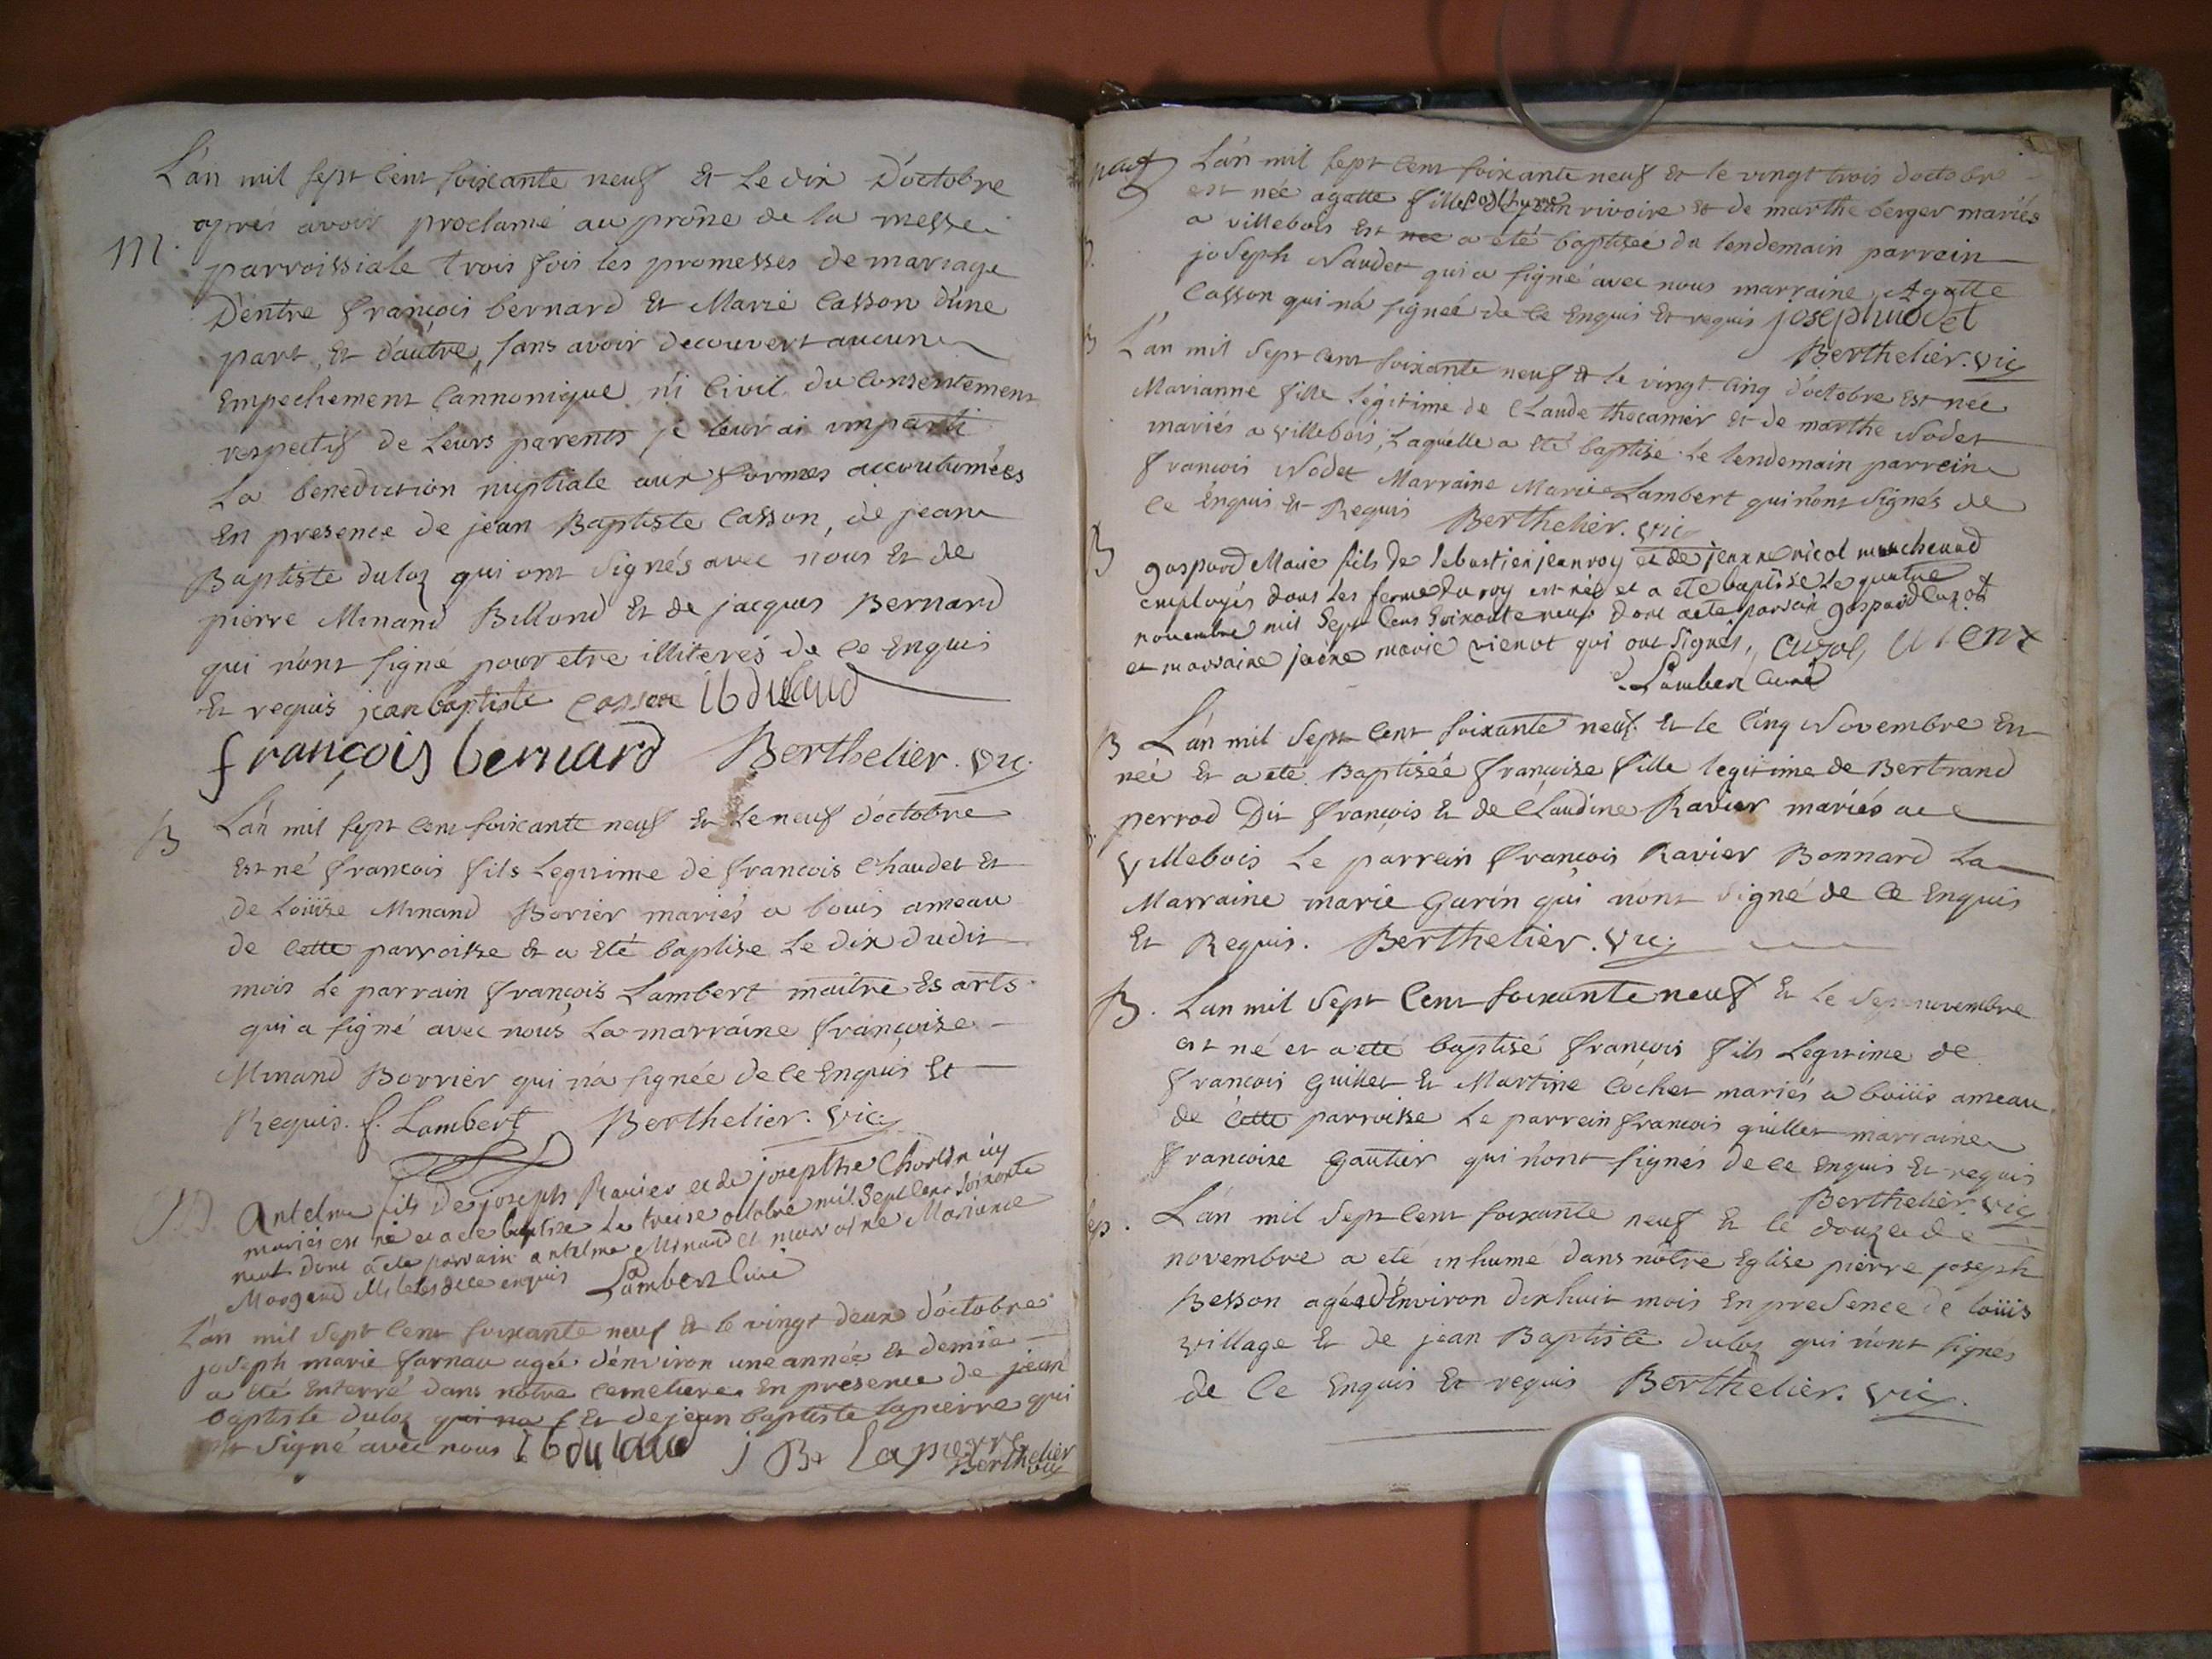 L'an mil sept cent soixante neuf Et Le dix D'octobre
aprés avoir proclamé au prône de la messe
M.
parroissiale trois fois les promesses de mariage
D'entre françois bernard Et Marie Casson d'une
part, Et d'autre, sans avoir decouvert aucun
Empechement Cannonique ni Civil du Consentement
respectif de Leurs parents je leur ai imparti
La benediction nuptiale aux formes accoutumées
En presence de jean Baptiste Casson, de jean
Baptiste duloz qui ont signés avec nous Et de
pierre Minand Billond Et de jacques Bernard
qui n'ont signé pour etre illiterés de ce Enquis
Et requis jean baptiste Casson
françois bernard Berthelier. vic.
B
L'an mil sept cent soixante neuf Et Le neuf d'octobre
Est né francois fils Legitime de francois Chaudet Et
de Loüise Minand Borier mariés a bouis ameau
de cette parroisse Et a été baptise Le dix dudit
mois Le parrain françois Lambert maître Es arts
qui a signé avec nous La marraine françoise
Minand Borrier qui n'a signée de ce Enquis Et
Requis. f. Lambert Berthelier. vic.
antelme fils de joseph Ravier et de josepthe
mariés est né et a ete baptise Le treise octobre mil sept cent soixante
neuf dont a ete parrain antelme Minand et marraine Marianne
Lambert Curé
L'an mil sept cent soixante neuf Et le vingt deux d'octobre
joseph marie farnau agée d'environ une année Et demie
a été Enterré dans notre Cemetiere En presence de jean
baptiste duloz qui na s Et de jean baptiste lapierre qui
ont signé avec nous j Bt Lapierre
Berthelier
vic
L'an mil sept cent soixante neuf Et le vingt trois d'octobre
est née agatte fille posthume de jean rivoire Et de marthe berger mariés
a villebois Est née a été baptisée du lendemain parrain
joseph Naudet qui a signé avec nous marraine Agatte
Casson qui n'a signée de ce Enquis Et requis joseph nodet
Berthelier. vic
B
L'an mil sept cent soixante neuf Et le vingt cinq d'octobre Est née
Marianne fille Légitime de Claude thocanier Et de marthe Nodet
mariés a villebois, Laquelle a été baptisé Le lendemain parrein
francois Nodet Marraine Marie Lambert qui n'ont signés de
ce Enquis Et Requis Berthelier. vic
B
gaspard Marie fils de sebastien jeanroy et de jeanne nicol
employés dans les fermes du roy est né et a ete baptise Le quatre
novembre mil sept cens soixante neuf dont a ete parrain gaspard Cuzot
et marraine jeane marie vienot qui ont signés,
Lambert Curé
B
L'an mil sept cent soixante neuf Et le Cinq Novembre Est
née Et a ete Baptisée françoise fille legitime de Bertrand
perrod Dit françois Et de Claudine Ravier mariés a
villebois Le parrein francois Ravier Bonnard La
Marraine marie Garin qui n'ont signé de ce Enquis
Et Requis. Berthelier. vic.
B.
L'an mil sept Cent soixante neuf Et Le Sept novembre
est né et a eté baptisé francois fils Legitime de
francois Guillet Et Martine Cochet mariés a boüis ameau
de cette parroisse Le parrein francois guillet marraine
francoise Gautier qui n'ont signés de ce Enquis Et requis
Berthelier. vic
L'an mil sept cent soixante neuf Et le douze de
novembre a eté inhumé dans nôtre Eglise pierre joseph
Besson agée d'Environ dix huit mois En presence de loüis
village Et de jean Baptiste duloz qui n'ont signés
de ce Enquis Et requis Berthelier. vic.